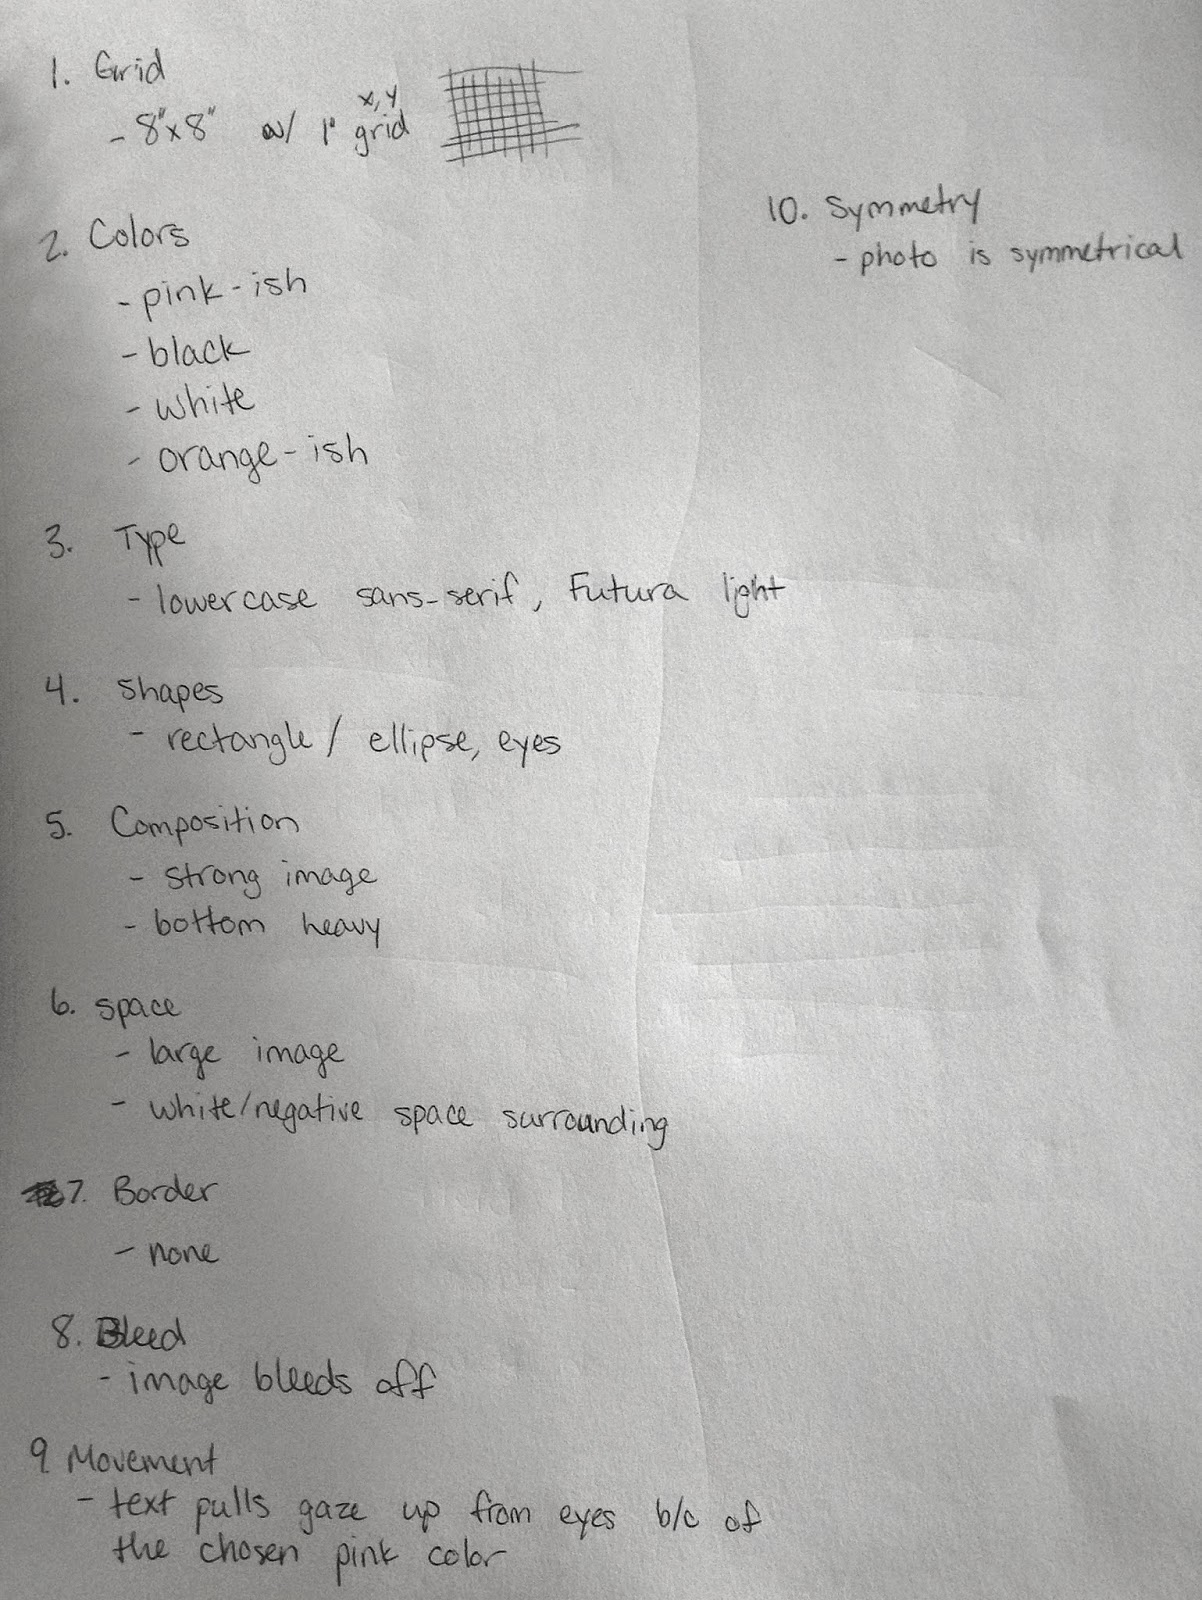 1. Grid
x, y
- 8"x8" w/ 1" grid
2. Colors
- pink-ish
- black
- white
- orange-ish
3. Type
- lowercase sans-serif, Futura light
4. shapes
- rectangle / ellipse, eyes
5. Composition
- strong image
- bottom heavy
6. space
- large image
- white/negative space surrounding
7. Border
- none
8. Bleed
- image bleeds off
9. Movement
- text pulls gaze up from eyes b/c of
the chosen pink color
10. Symmetry
- photo is symmetrical